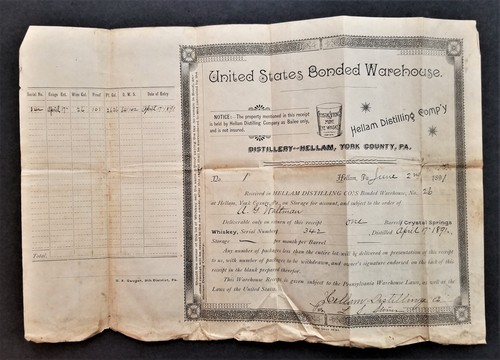 Serial No. Gauge Bol. Wine Gal. Proof O. W. G. Date of Entry
342 April 17 26 101 April 17 1891
Total
United States Bonded Warehouse.
NOTICE:- The property mentioned in this receipt
is held by Hellam Distilling Company as Bailee only, and
is not insured.
CRYSTAL SPRING
PURE
RYE WHISKEY
Hellam Distilling Comp'y
DISTILLERY--HELLAM, YORK COUNTY, PA.
No. 1 Hellam, Pa. June 2nd 1891
Received in HELLAM DISTILLING CO.'S Bonded Warehouse, No. 26
at Hellam, York County, Pa., on Storage for account, and subject to the order of
A. G. Waltman
Deliverable only on return of this receipt one Barrel Crystal Springs
Whiskey, Serial Number 342 Distilled April 17 1891.
Storage — per month per Barrel
Any number of packages less than the entire lot will be delivered on presentation of this receipt
to us, with number of packages to be withdrawn, and owner's signature endorsed on the back of this
receipt in the blank prepared therefor.
This Warehouse Receipt is given subject to the Pennsylvania Warehouse Laws, as well as the
Laws of the United States.
Hellam Distilling Co.